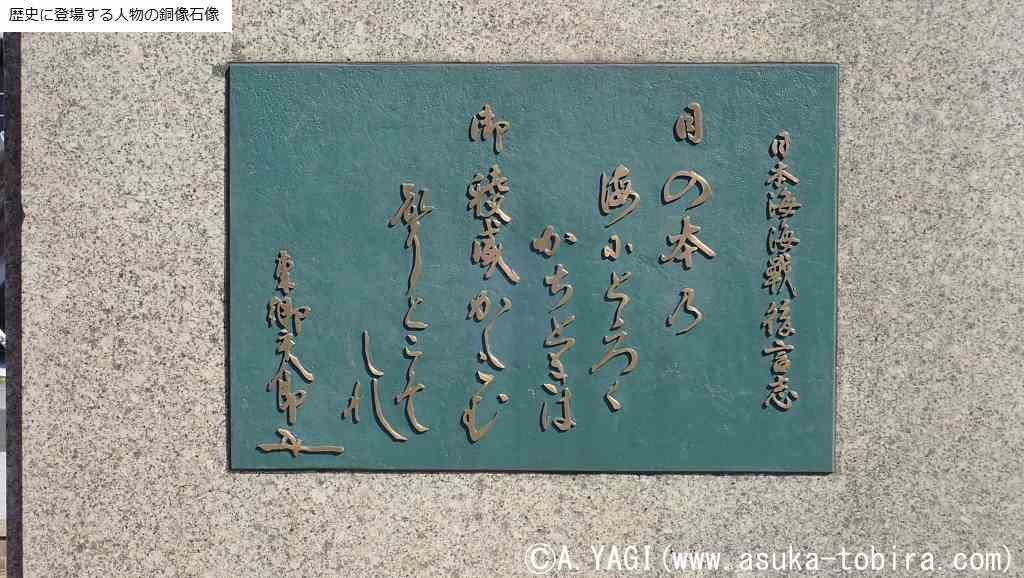 歴史に登場する人物の銅像石像
日本海海戰後言志
日の本乃
海尓とゝろく
かちときは
御稜威かしこむ
聲とこそ
しれ
東郷平八郎
©A.YAGI(www.asuka-tobira.com)